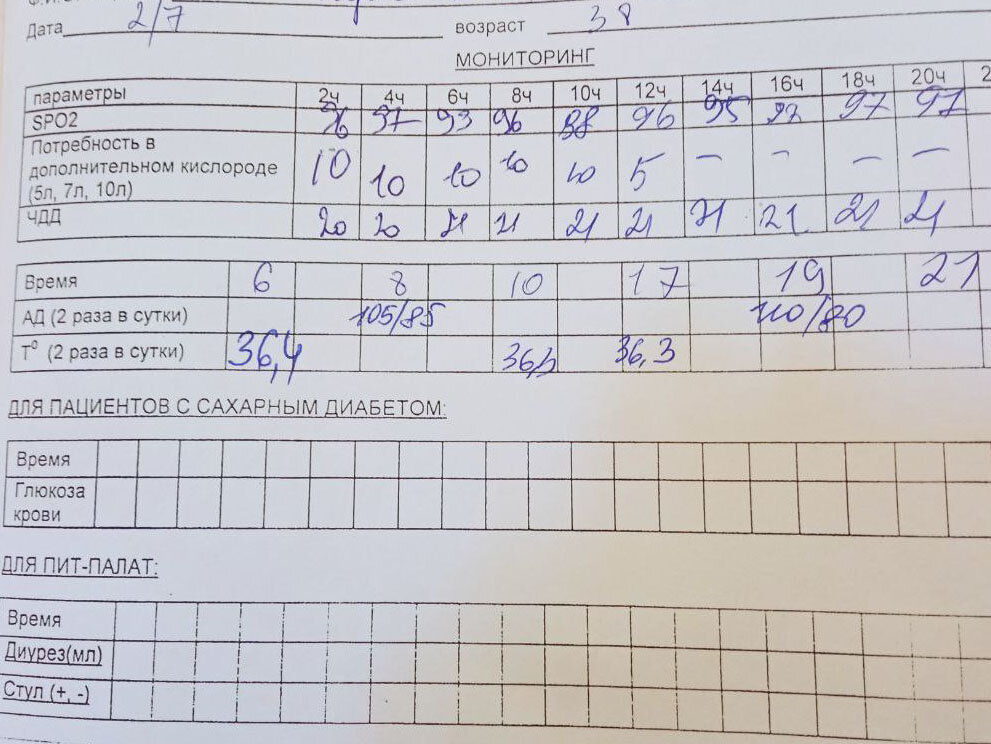 Дата 2/7 возраст 38
МОНИТОРИНГ
параметры 2ч 4ч 6ч 8ч 10ч 12ч 14ч 16ч 18ч 20ч 2
SPO2 96 97 93 96 98 96 95 97 97
Потребность в
дополнительном кислороде 10 10 10 10 10 5 – – – –
(5л, 7л, 10л)
ЧДД 20 20 21 21 21 21 21 21 21 21
Время 6 8 10 17 19 21
АД (2 раза в сутки) 105/85 110/80
Т⁰ (2 раза в сутки) 36,4 36,3 36,3
ДЛЯ ПАЦИЕНТОВ С САХАРНЫМ ДИАБЕТОМ:
Время
Глюкоза
крови
ДЛЯ ПИТ-ПАЛАТ:
Время
Диурез(мл)
Стул (+, -)